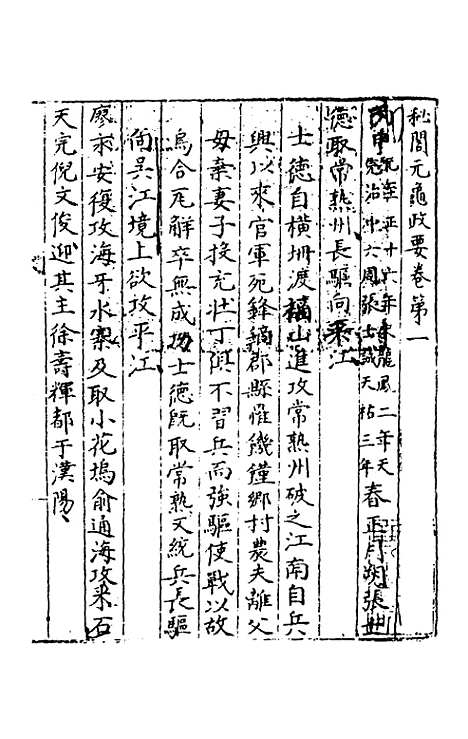 秘閣元龜政要卷第一
丙申元至正十六年宋龍鳳二年天完治平六周張士誠天祐三年春正月朔張士
德取常熟州長驅向平江
士德自橫坍渡福山進攻常熟州破之江南自兵
興以來官軍死鋒鏑郡縣罹饑饉鄉村農夫離父
母棄妻子投充壯丁俱不習兵而強驅使戰以故
烏合瓦解卒無成功士德既取常熟又統兵長驅
向吳江境上欲攻平江
廖永安復攻海牙水寨及取小花塢俞通海攻采石
天完倪文俊迎其主徐壽輝都于漢陽